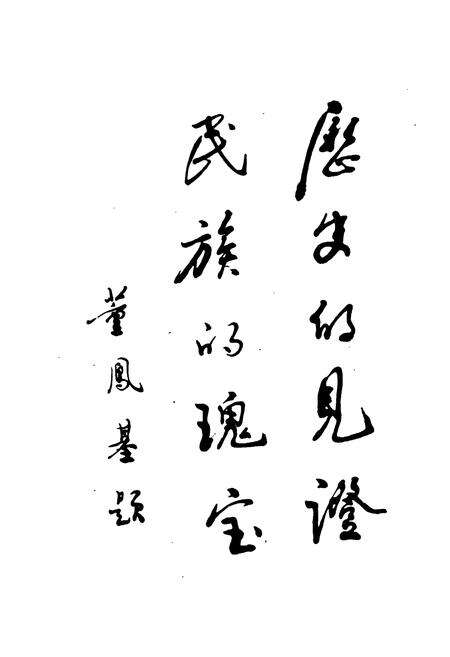 歷史的見證
民族的瑰宝
董鳳基題